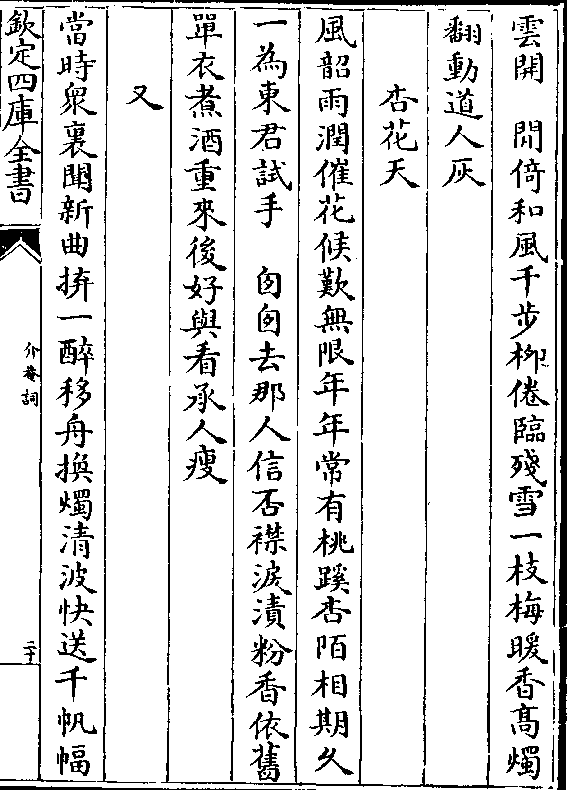 雲開　閒倚和風千步柳倦臨殘雪一枝梅暖香髙燭
翻動道人灰
杏花天
風韶雨潤催花候歎無限年年常有桃蹊杏陌相期久
一為東君試手　匆匆去那人信否襟淚漬粉香依舊
單衣煮酒重來後好與看承人瘦
又
當時衆裏聞新曲拚一醉移舟換燭清波快送千帆幅
欽定四庫全書
介菴詞
二十